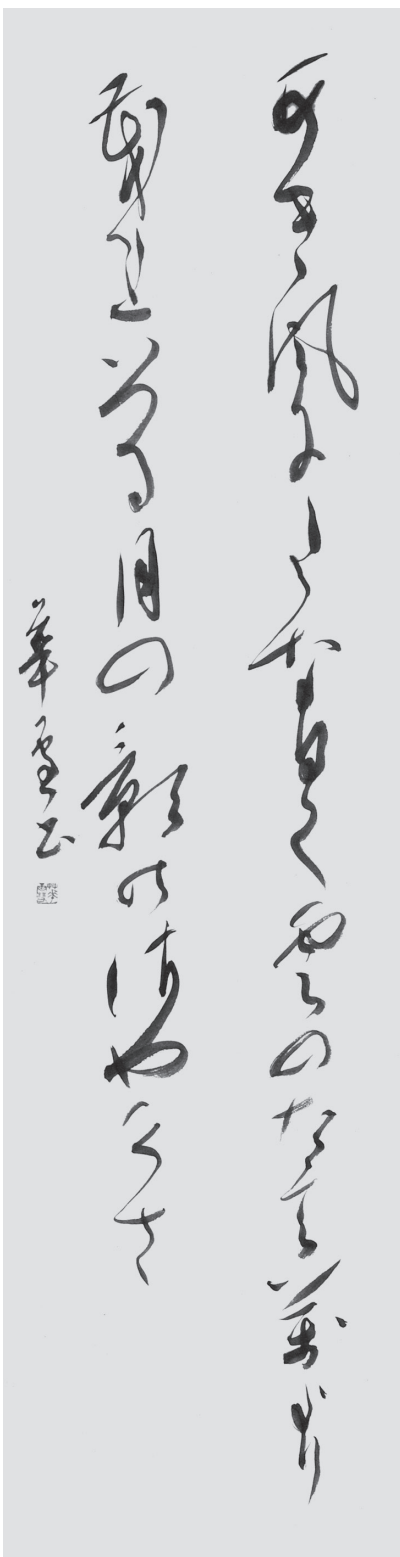 あき風にたな日く雲のたえ萬より
もれいつる月の影のさやけさ
華雪書